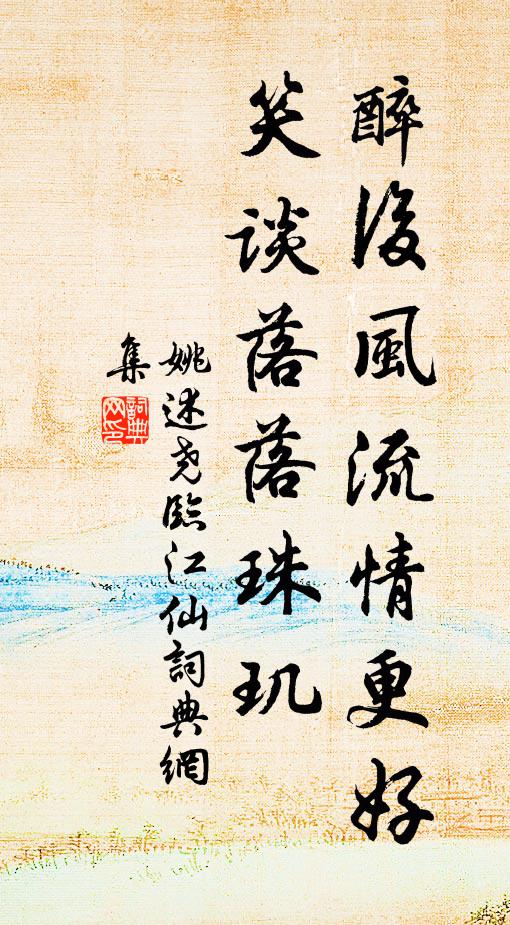 醉後風流情更好
笑谈落落珠玑
姚述尧臨江仙詞典網
集
詞典网印